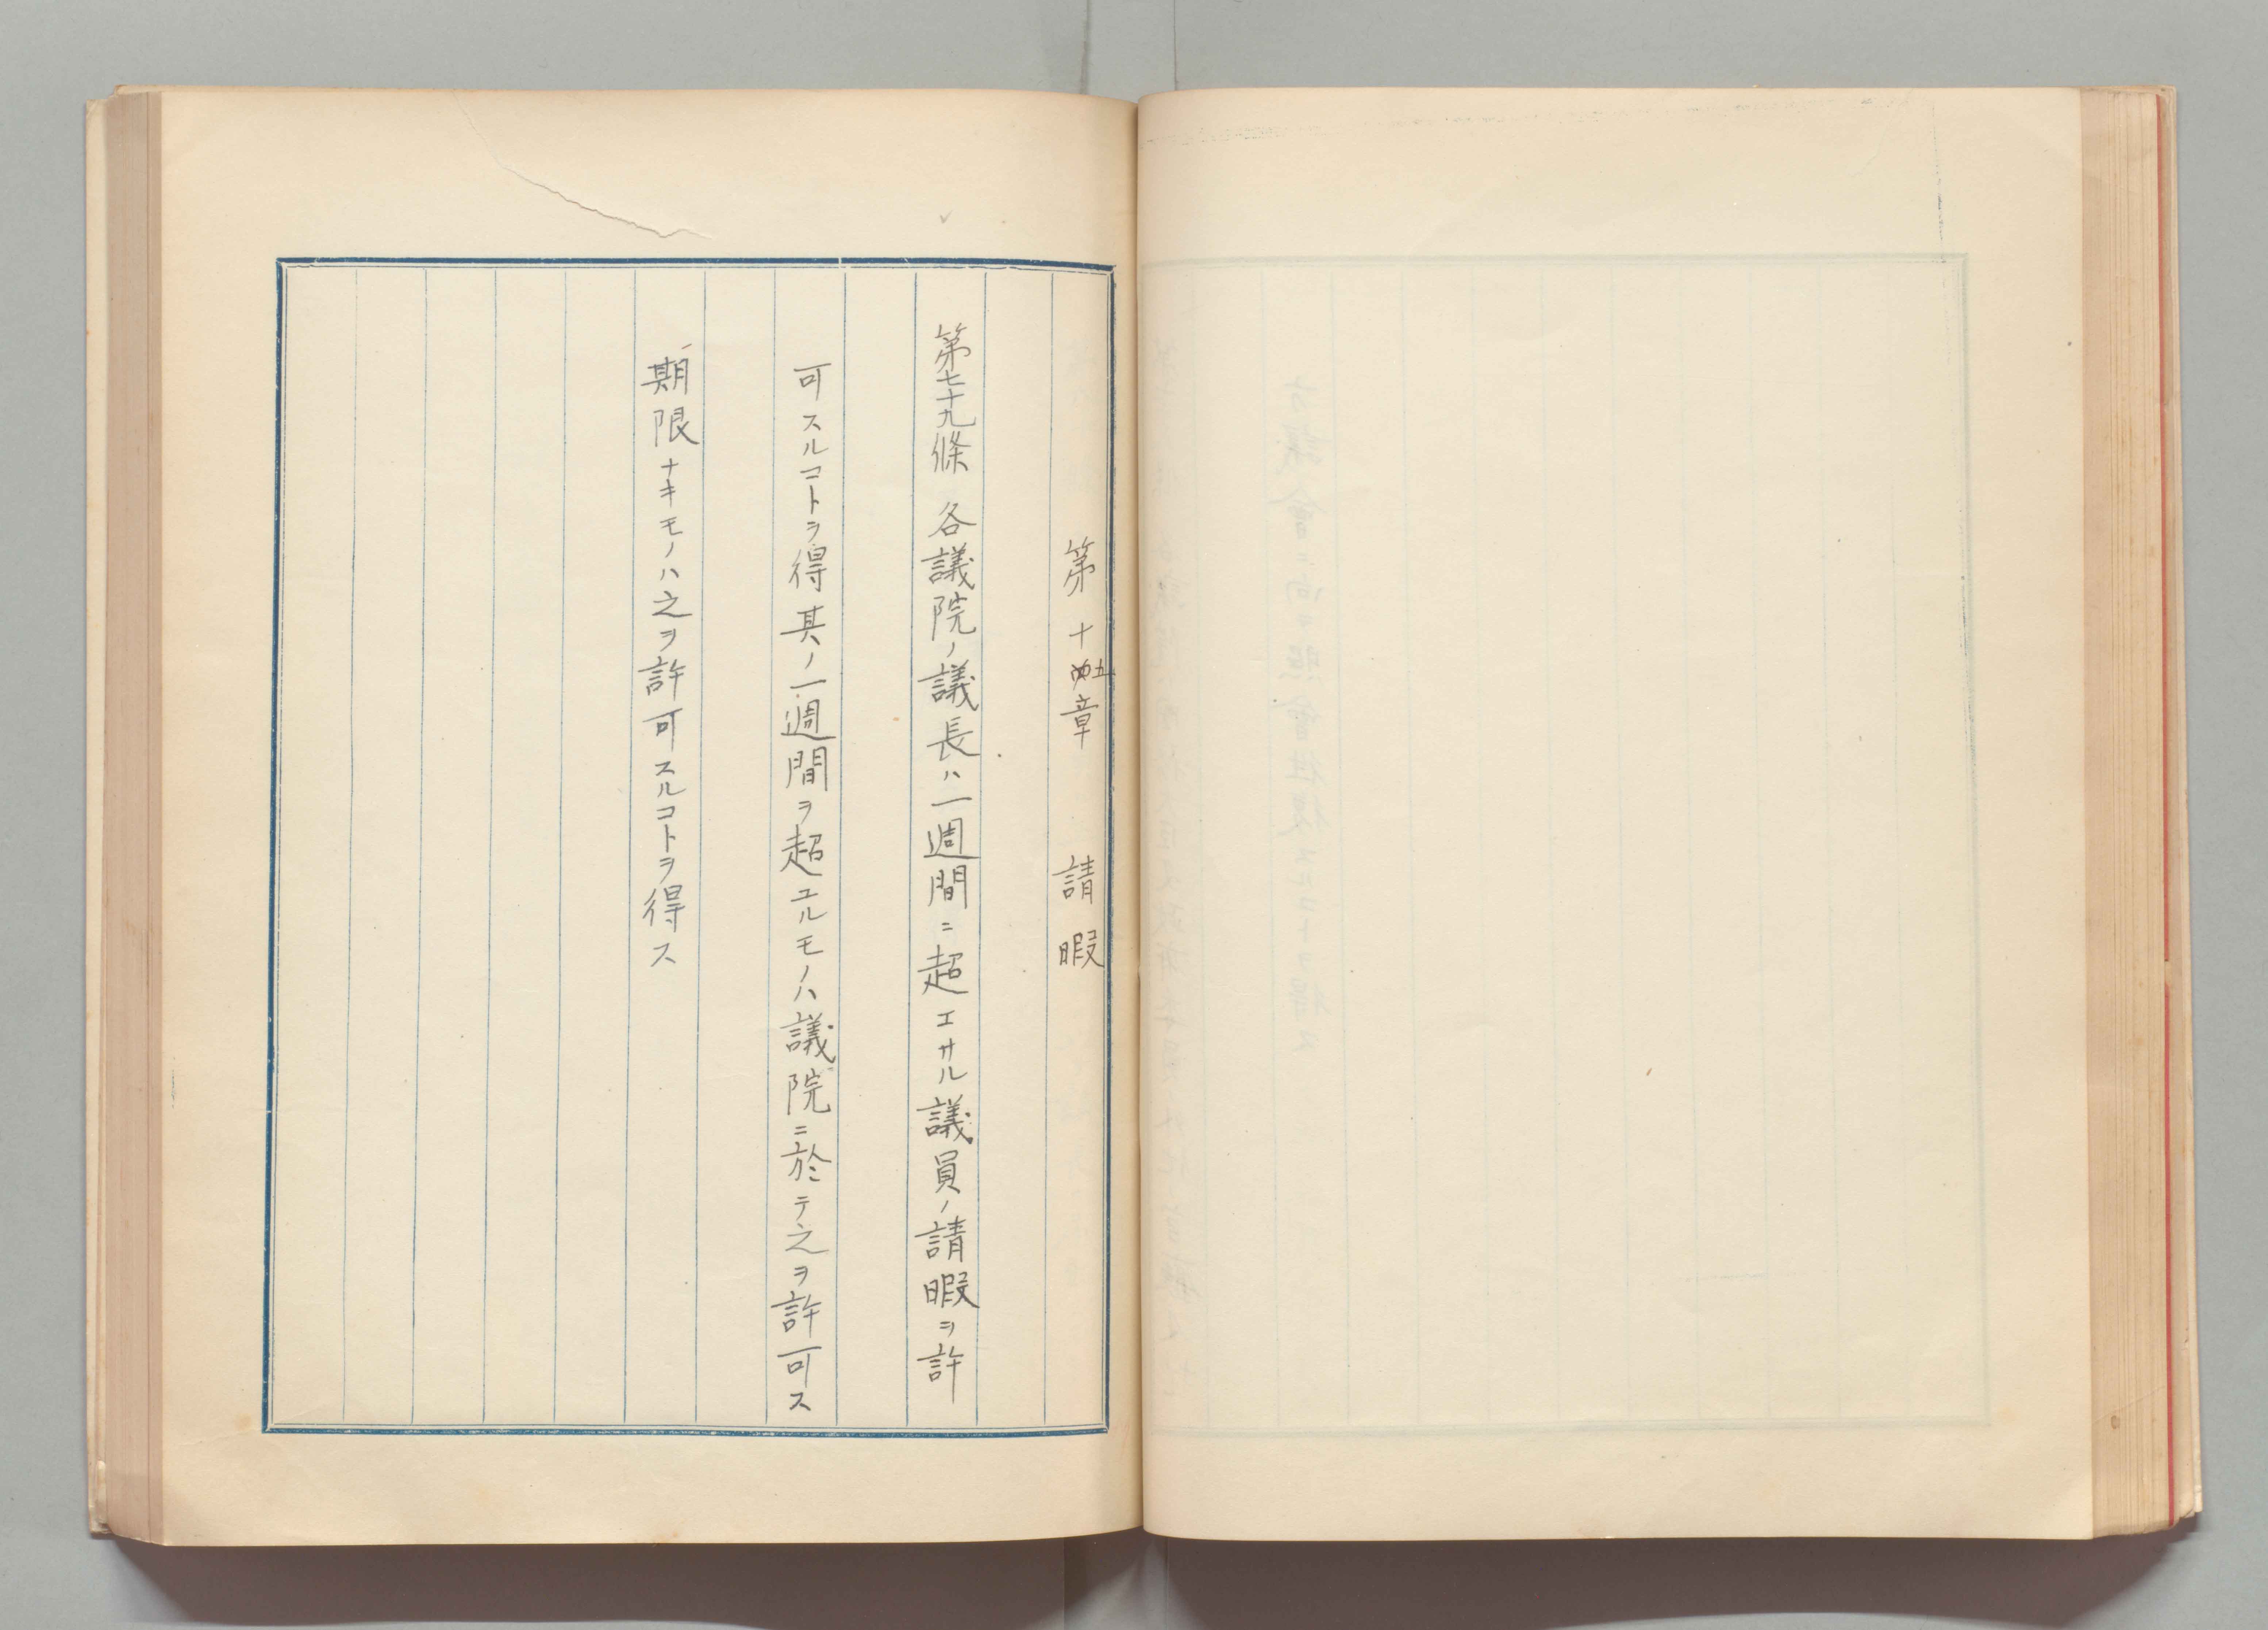 第十五章　請暇
第七十九條　各議院ノ議長ハ一週間ニ超エサル議員ノ請暇ヲ許
可スルコトヲ得其ノ一週間ヲ超ユルモノハ議院ニ於テ之ヲ許可ス
期限ナキモノハ之ヲ許可スルコトヲ得ス